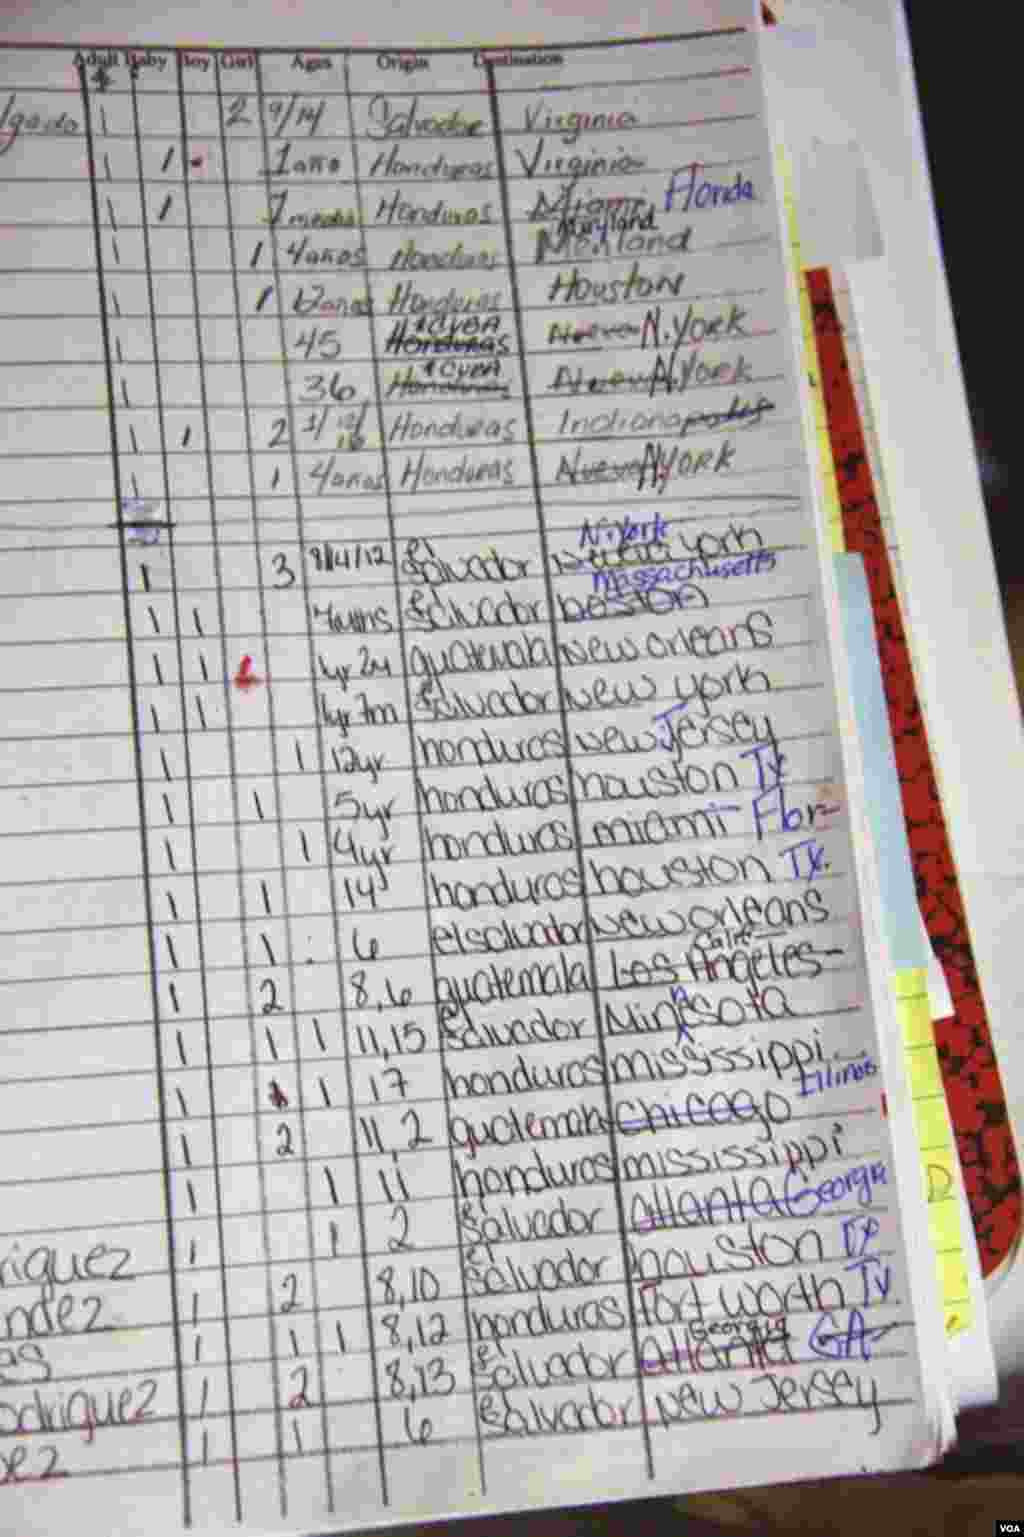 Adult Baby Boy Girl Ages Origin Destination
lgado 1 2 9/14 Salvador Virginia
1 1 1 año Honduras Virginia
1 1 7 meses Honduras Miami Florida
Maryland
1 1 4 anos Honduras Meriland
1 1 12 anos Honduras Houston
* CUBA
1 45 Honduras Nueva N.York
* CUBA
1 36 Honduras Nueva N.York
1 1 2 Honduras Indianapolis
1 1 4 anos Honduras Nueva N.York
N.York
1 3 8/4/12 el Salvador york
Massachusetts
1 1 el Salvador boston
1 1 1yr 2m guatemala new orleans
1 1 1yr 7m el Salvador new york
1 1 12yr honduras new Jersey
1 1 5yr honduras houston Tx
1 1 4yr honduras miami Flor-
1 1 14 honduras houston Tx.
1 1 6 el salvador new orleans
Calif-
1 2 8,6 guatemala Los Angeles-
1 1 1 11,15 el Salvador Minnesota
1 1 1 17 honduras mississippi
Illinois
1 2 11,2 guatemala chicago
1 1 11 honduras mississippi
1 1 2 el Salvador atlanta Georgia
riguez 1 2 8,10 el Salvador houston Tx
ndez 1 1 1 8,12 honduras Fort worth Tx.
Georgia
as 1 2 8,13 el Salvador atlanta GA
odriguez 1 1 6 el Salvador new Jersey
ez
D
VOA